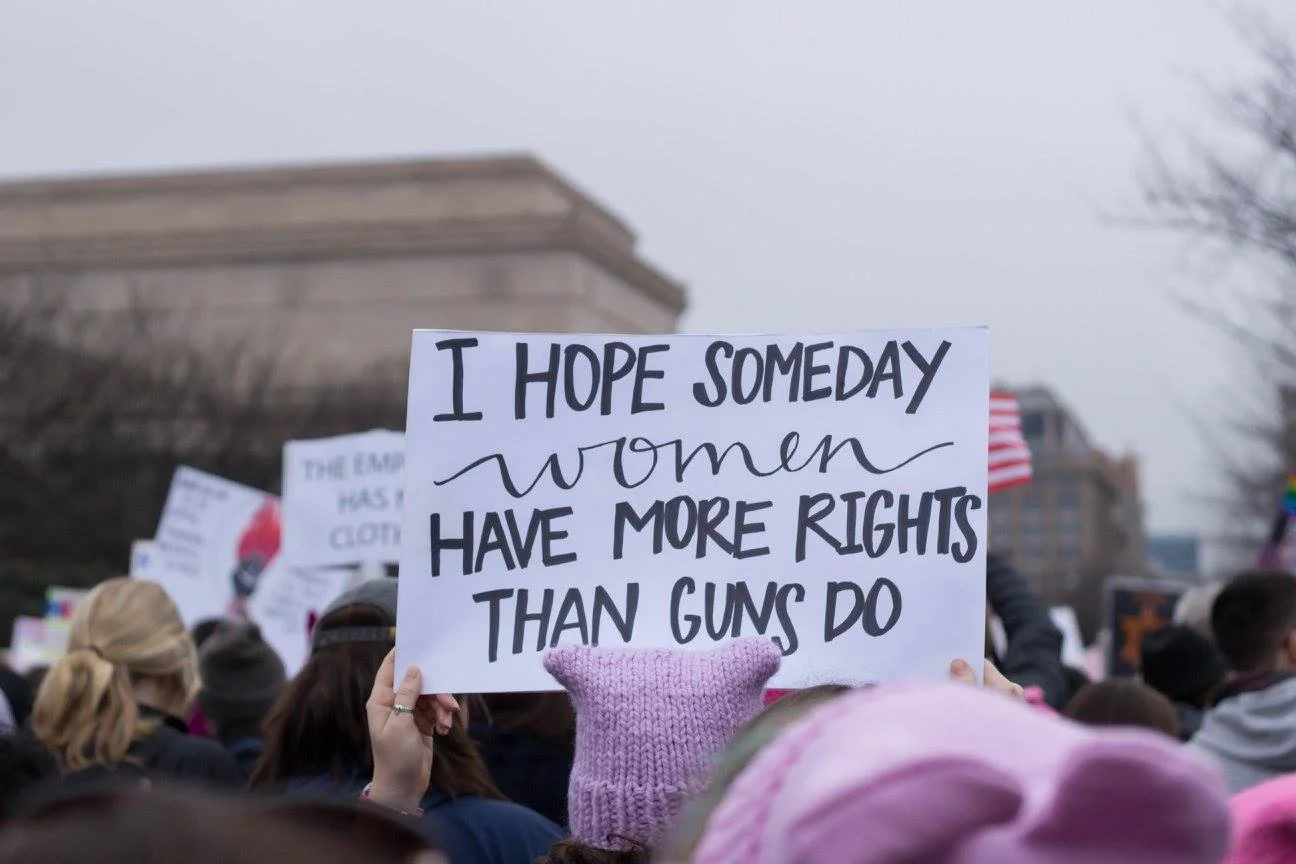 I HOPE SOMEDAY
women
HAVE MORE RIGHTS
THAN GUNS DO
THE
HAS